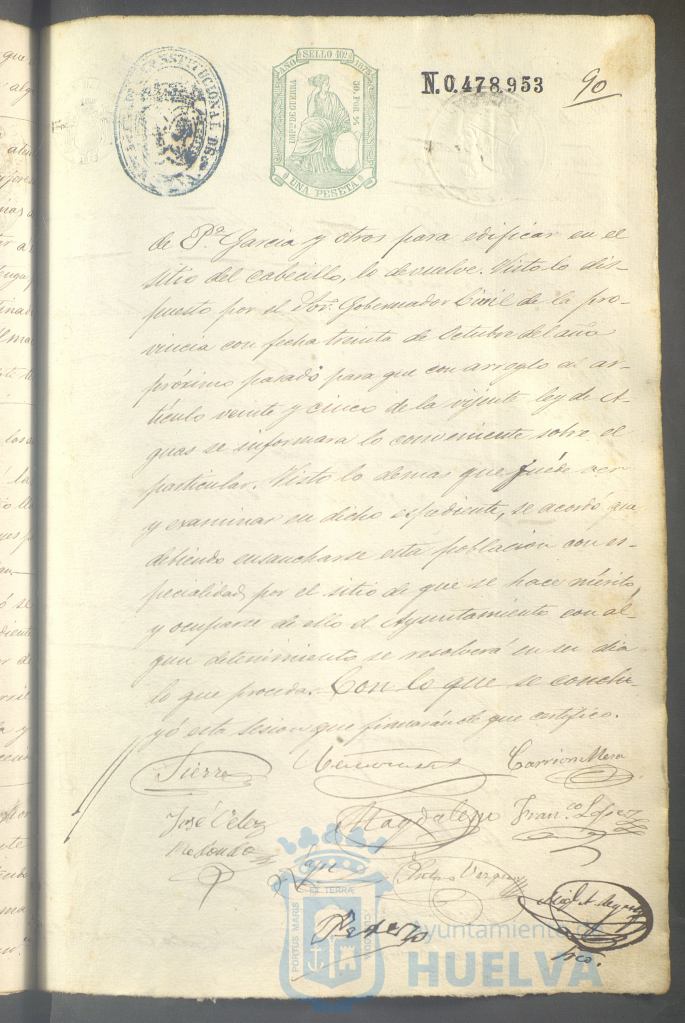 AÑO SELLO 10º 1875
IMPº DE GUERRA
50 POR %
UNA PESETA
N.0.478.953
90
CONSTITUCIONAL DE
de P.ª Garcia y otros para edificar en el
sitio del cabecillo, lo devuelve. Visto lo dis-
puesto por el Sor. Gobernador Civil de la pro-
vincia con fecha treinta de Octubre del año
próximo pasado para que con arreglo al ar-
ticulo veinte y cinco de la vijente ley de A-
guas se informara lo conveniente sobre el
particular. Visto lo demas que fuése ver
y examinar en dicho espediente, se acordó que
debiendo ensancharse esta población con es-
pecialidad por el sitio de que se hace mérito,
y ocuparse de ello el Ayuntamiento con al-
gun detenimiento se resolverá en su dia
lo que proceda. Con lo que se conclu-
yó esta sesion que firmarán de que certifico.
Sierra
Carrion Mora
José Velez
Magdaleno
Fran.co Lopez
Redondo
Vergara
PORTUS MARIS
ET TERRÆ
CUSTODIA
Ayuntamiento de
HUELVA
Srio.